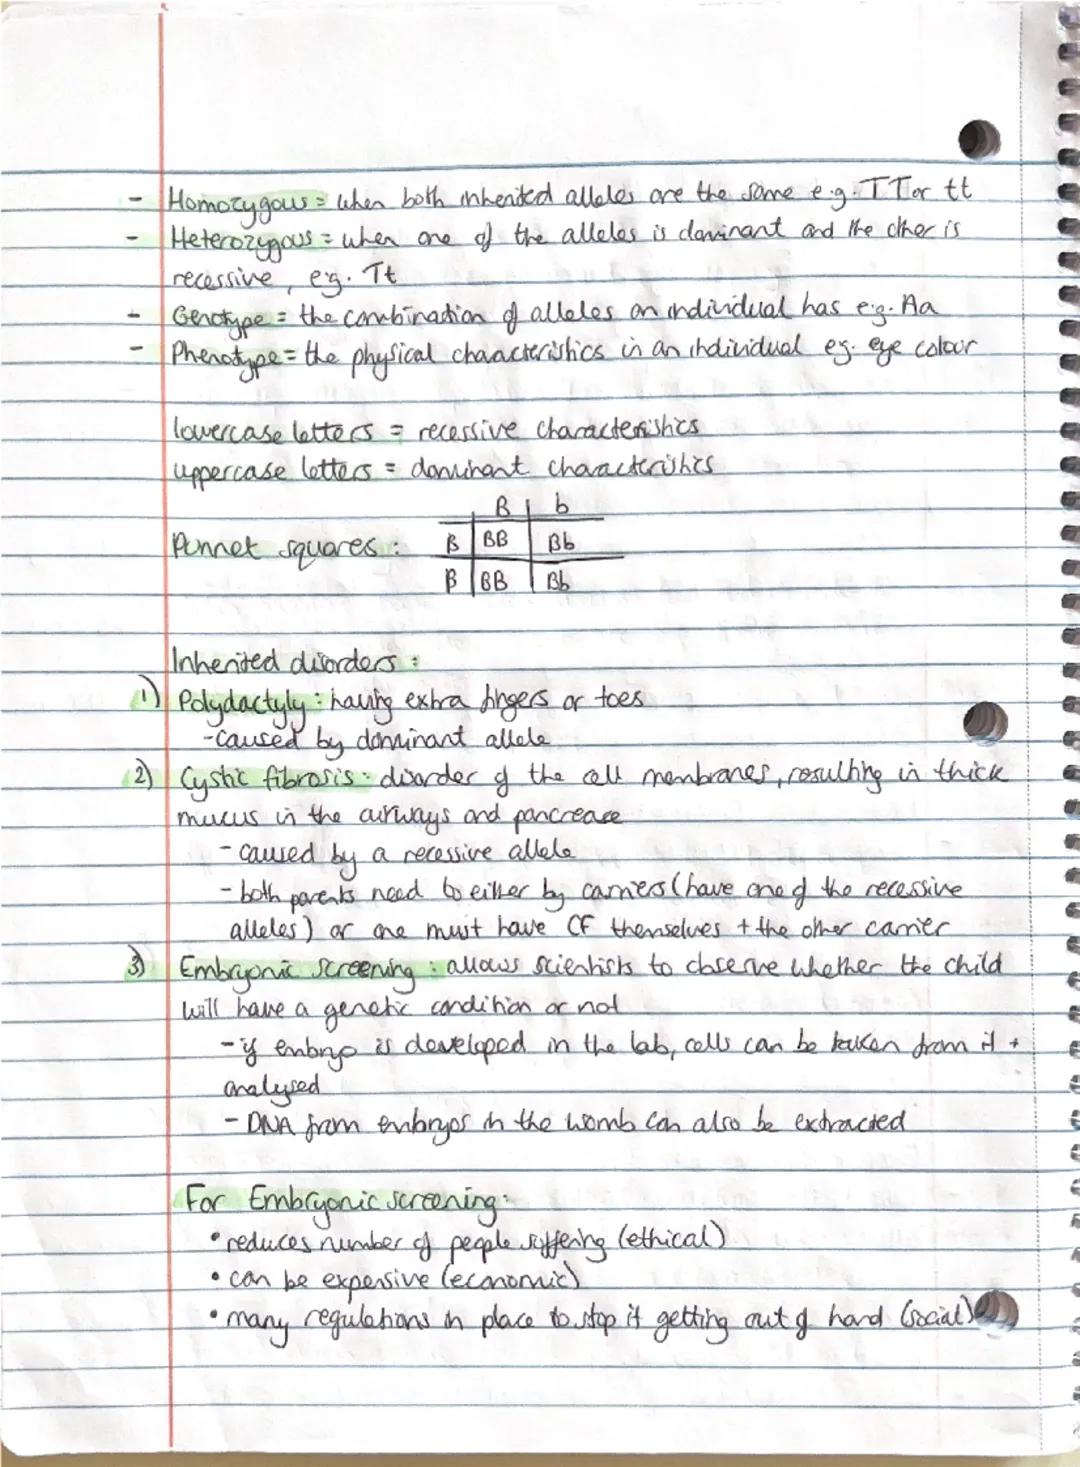 - Homozygous = when both inherited alleles are the same e.g. TT or tt
- Heterozygous = when one of the alleles is dominant and the other is
recessive, e.g. Tt
- Genotype = the combination of alleles an individual has e.g. Aa
- Phenotype = the physical characteristics in an individual eg. eye colour
lowercase letters = recessive characteristics
uppercase letters = dominant characteristics
B b
Punnet squares : B BB Bb
B BB Bb
Inherited disorders :
1) Polydactyly : having extra fingers or toes
- caused by dominant allele
2) Cystic fibrosis : disorder of the cell membranes, resulting in thick
mucus in the airways and pancrease
- caused by a recessive allele
- both parents need to either by carriers (have one of the recessive
alleles) or one must have CF themselves + the other carrier
3) Embryonic screening : allows scientists to observe whether the child
will have a genetic condition or not
- if embryo is developed in the lab, cells can be taken from it +
analysed
- DNA from embryos in the womb can also be extracted
For Embryonic screening:
• reduces number of people suffering (ethical)
• can be expensive (economic)
• many regulations in place to stop it getting out of hand (social)